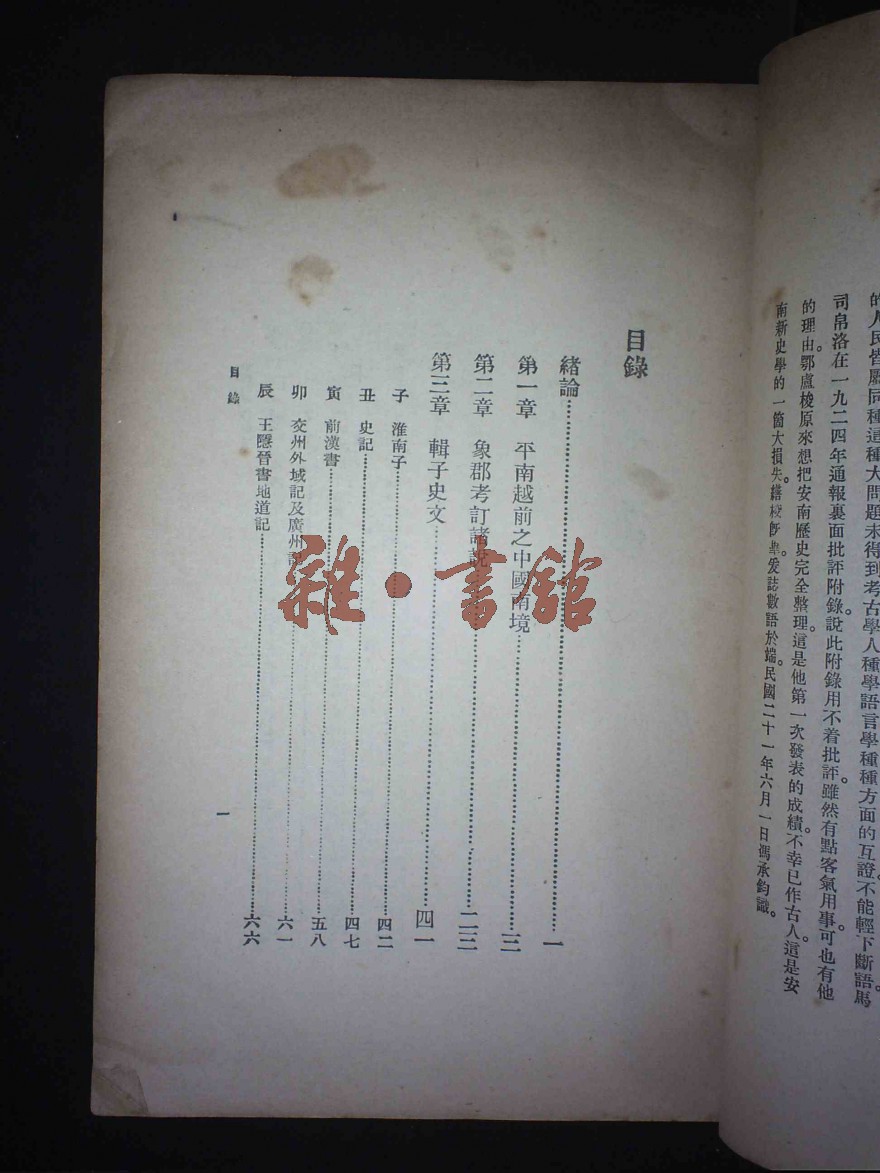 的人民皆屬同種這種大問題未得到考古學人種學語言學種種方面的互證不能輕下斷語馬
司帛洛在一九二四年通報裏面批評附錄。說此附錄用不着批評。雖然有點客氣用事。可也有他
的理由。鄂盧梭原來想把安南歷史完全整理。這是他第一次發表的成績。不幸已作古人。這是安
南新史學的一箇大損失。繕校旣畢。爰誌數語於端。民國二十一年六月一日馮承鈞識。
目錄
緒論……一
第一章 平南越前之中國南境……三
第二章 象郡考訂諸說……二三
第三章 輯子史文……四一
子 淮南子……四二
丑 史記……四七
寅 前漢書……五八
卯 交州外域記及廣州記……六一
辰 王隱晉書地道記……六六
目錄
一
雜·書館